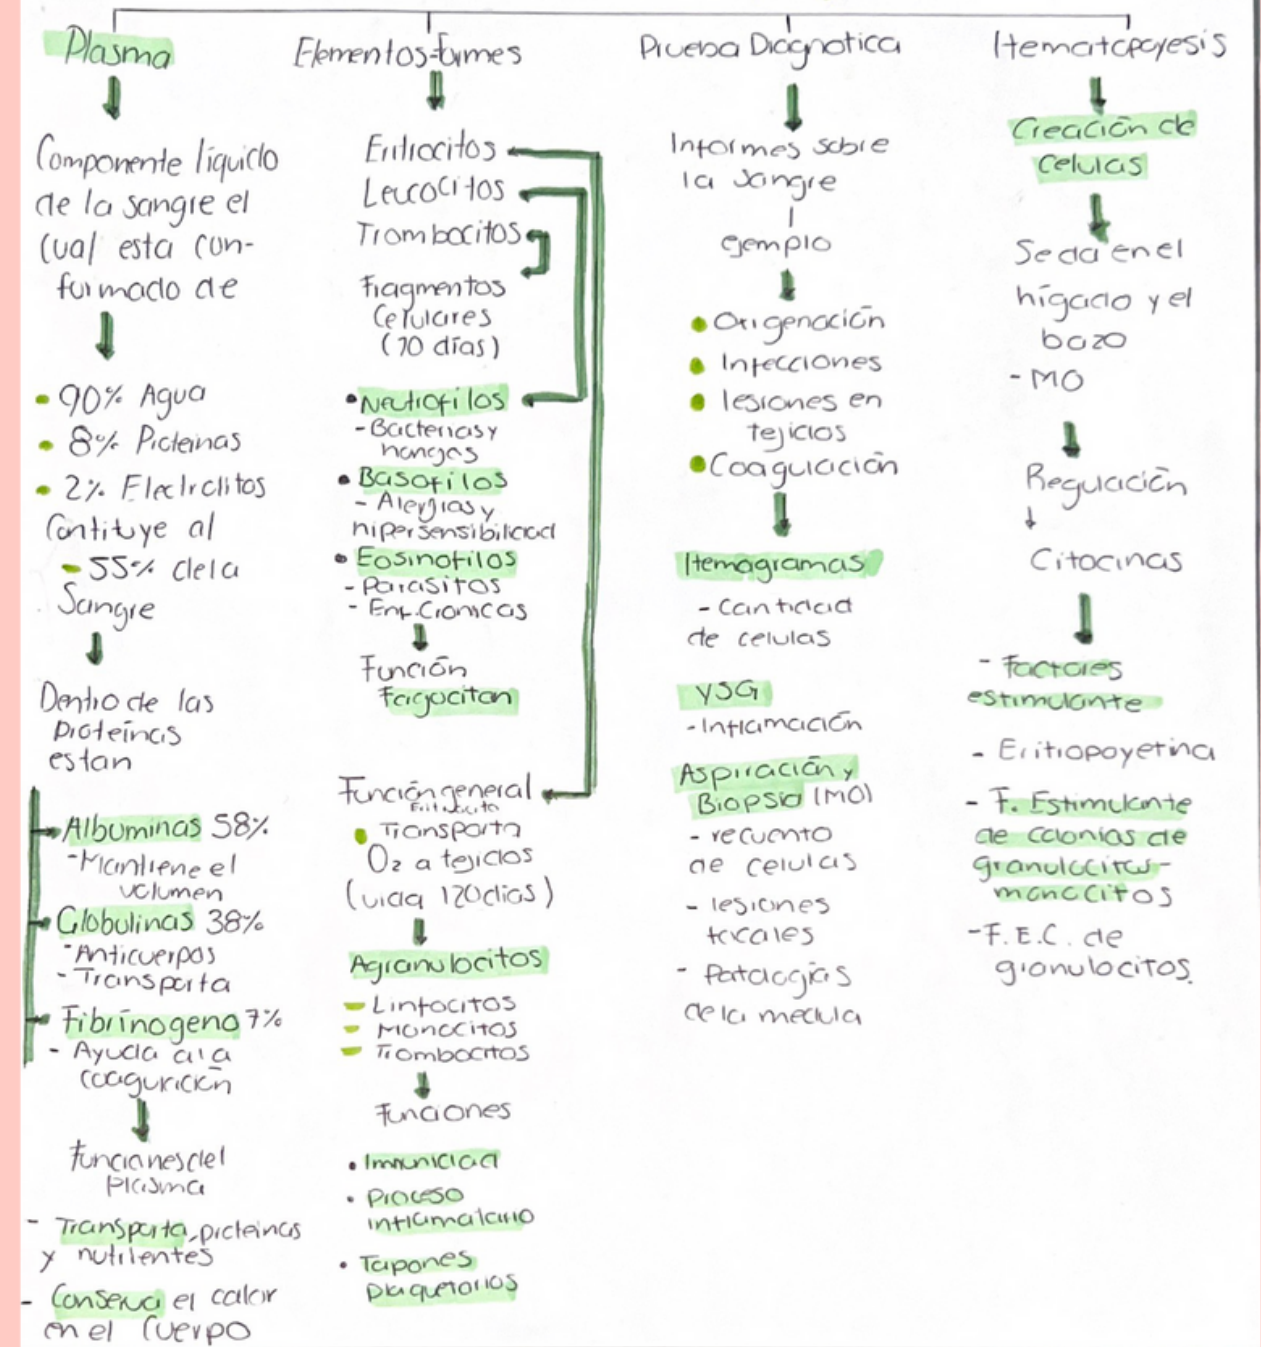 Plasma
Componente líquido
de la sangre el
cual esta con-
formado de
90% Agua
8% Proteinas
2% Electrolitos
Contituye al
55% de la
Sangre
Dentro de las
proteínas
estan
Albuminas 58%
- Mantiene el
volumen
Globulinas 38%
- Anticuerpos
- Transporta
Fibrinogeno 7%
- Ayuda a la
coagulación
funciones del
plasma
- Transporta, proteinas
y nutrientes
- Conserva el calor
en el Cuerpo
Elementos-formes
Eritrocitos
Leucocitos
Trombocitos
fragmentos
Celulares
(10 días)
• Neutrofilos
- Bacterias y
hongos
• Basofilos
- Alergias y
hipersensibilidad
• Eosinofilos
- Parasitos
- Enf. Cronicas
Función
fagocitan
Función general
Eritrocito
Transporta
O2 a tejidos
(vida 120 dias)
Agranulocitos
Linfocitos
Monocitos
Trombocitos
funciones
• Inmunidad
• Proceso
inflamatorio
• Tapones
plaquetarios
Prueba Diagnotica
Informes sobre
la sangre
ejemplo
Origenación
Infecciones
lesiones en
tejidos
Coagulación
Hemagramas
- Cantidad
de celulas
YSG
- Inflamación
Aspiración y
Biopsia (MO)
- recuento
de celulas
- lesiones
focales
- Patalogías
de la medula
Hematopoyesis
Creación de
Celulas
Se da en el
hígado y el
bazo
- MO
Regulación
Citocinas
- factores
estimulante
- Eritropoyetina
- F. Estimulante
de colonias de
granulocitos-
monocitos
- F.E.C. de
granulocitos.